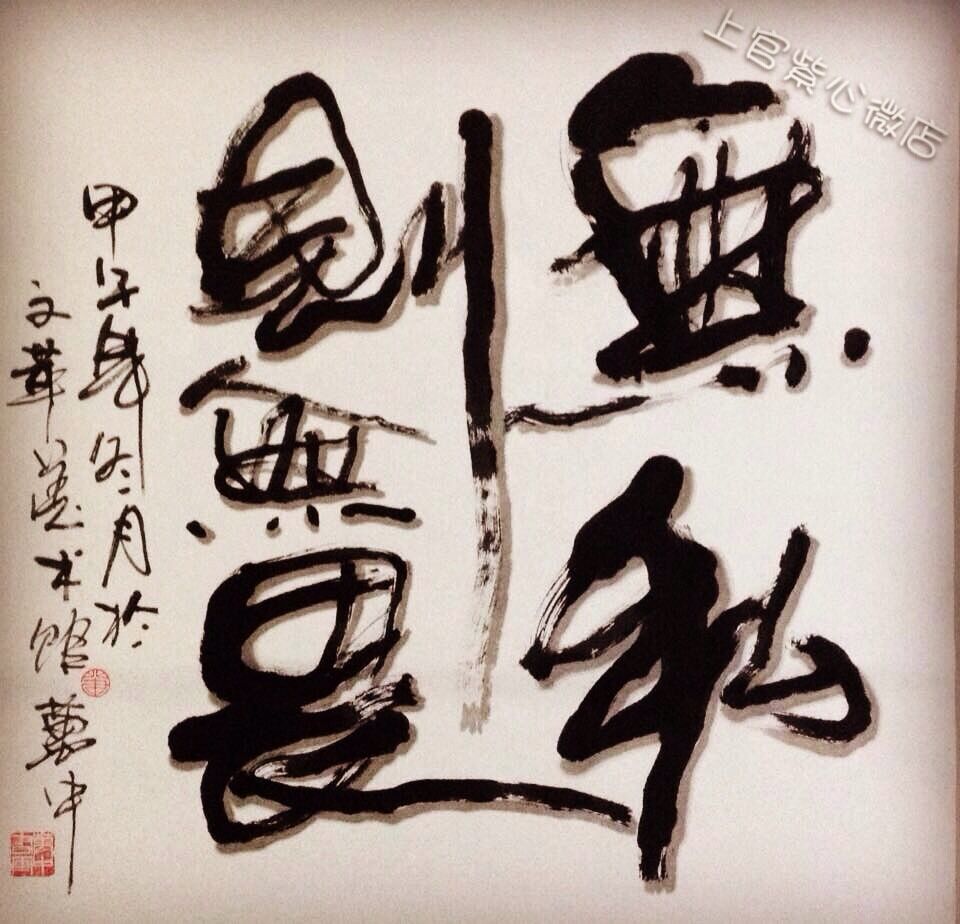 上官紫心微店
無私
則無畏
甲年冬月於
文華藝术館中